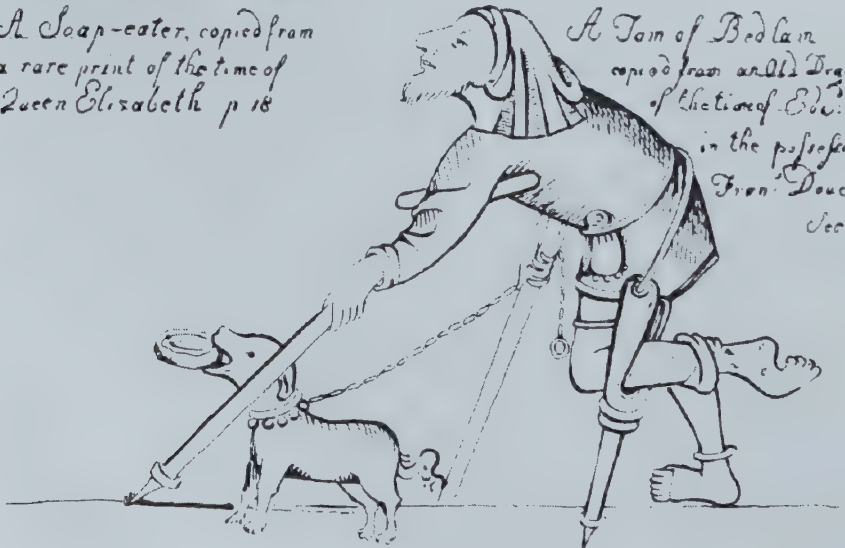 A Soap-eater, copied from
a rare print of the time of
Queen Elisabeth p 18
A Tom of Bedlam
copied from an Old
of the time of
in the
Fran:
See